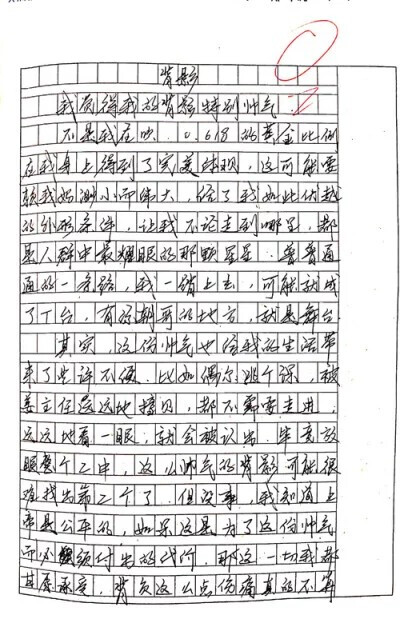 背影
我觉得我的背影特别帅气。
不是我在吹，0.618的黄金比例
在我身上得到了完美体现，这可能要
我妈 小而伟大，给了我如此优越
的外形条件，让我不论走到哪里，都
是人群中最耀眼的那颗星星。普普通
通的一条路，我一踏上去，可能就成
了T台，有 的地方，就是舞台
其实，这份帅气也给我的生活带
来了些许不便。比如偶尔逃个课，被
姜主任远远地撞见，都不需要走进，
远远地看一眼，就会被认出。毕竟放
眼整个二中，这么帅气的背影可能很
难找出第二个了。但没事，我知道上
帝是公平的，如果这是为了这份帅气
而必须付出的代价，那这一切我都
甘愿承受，背负这么点伤痛真的不算